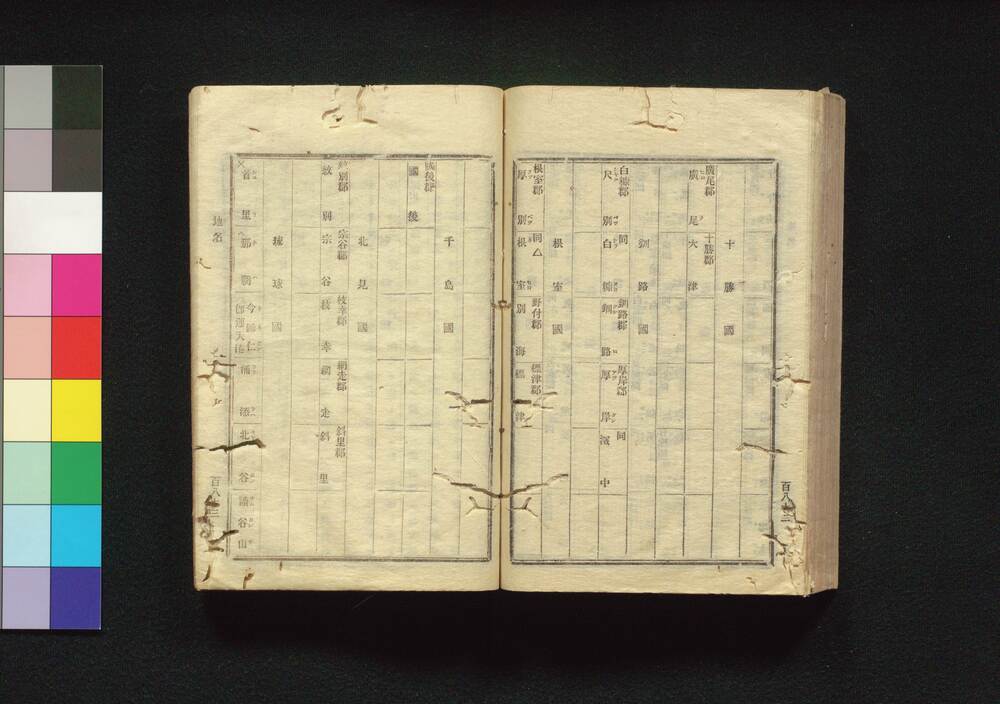 十勝國
廣尾郡 十勝郡
廣尾 大津
釧路國
白糠郡 同 釧路郡 厚岸郡 同
尺別 白糠 釧路 厚岸 濱中
根室國
根室郡 同 野付郡 標津郡
厚別 根室 別海 標津
百八十二
千島國
國後郡
國後
北見國
紋別郡 宗谷郡 枝幸郡 網走郡 斜里郡
紋別 宗谷 枝幸 網走 斜里
琉球國
首里 那覇 今歸仁 浦添 北谷 讀谷山
地名
百八十三